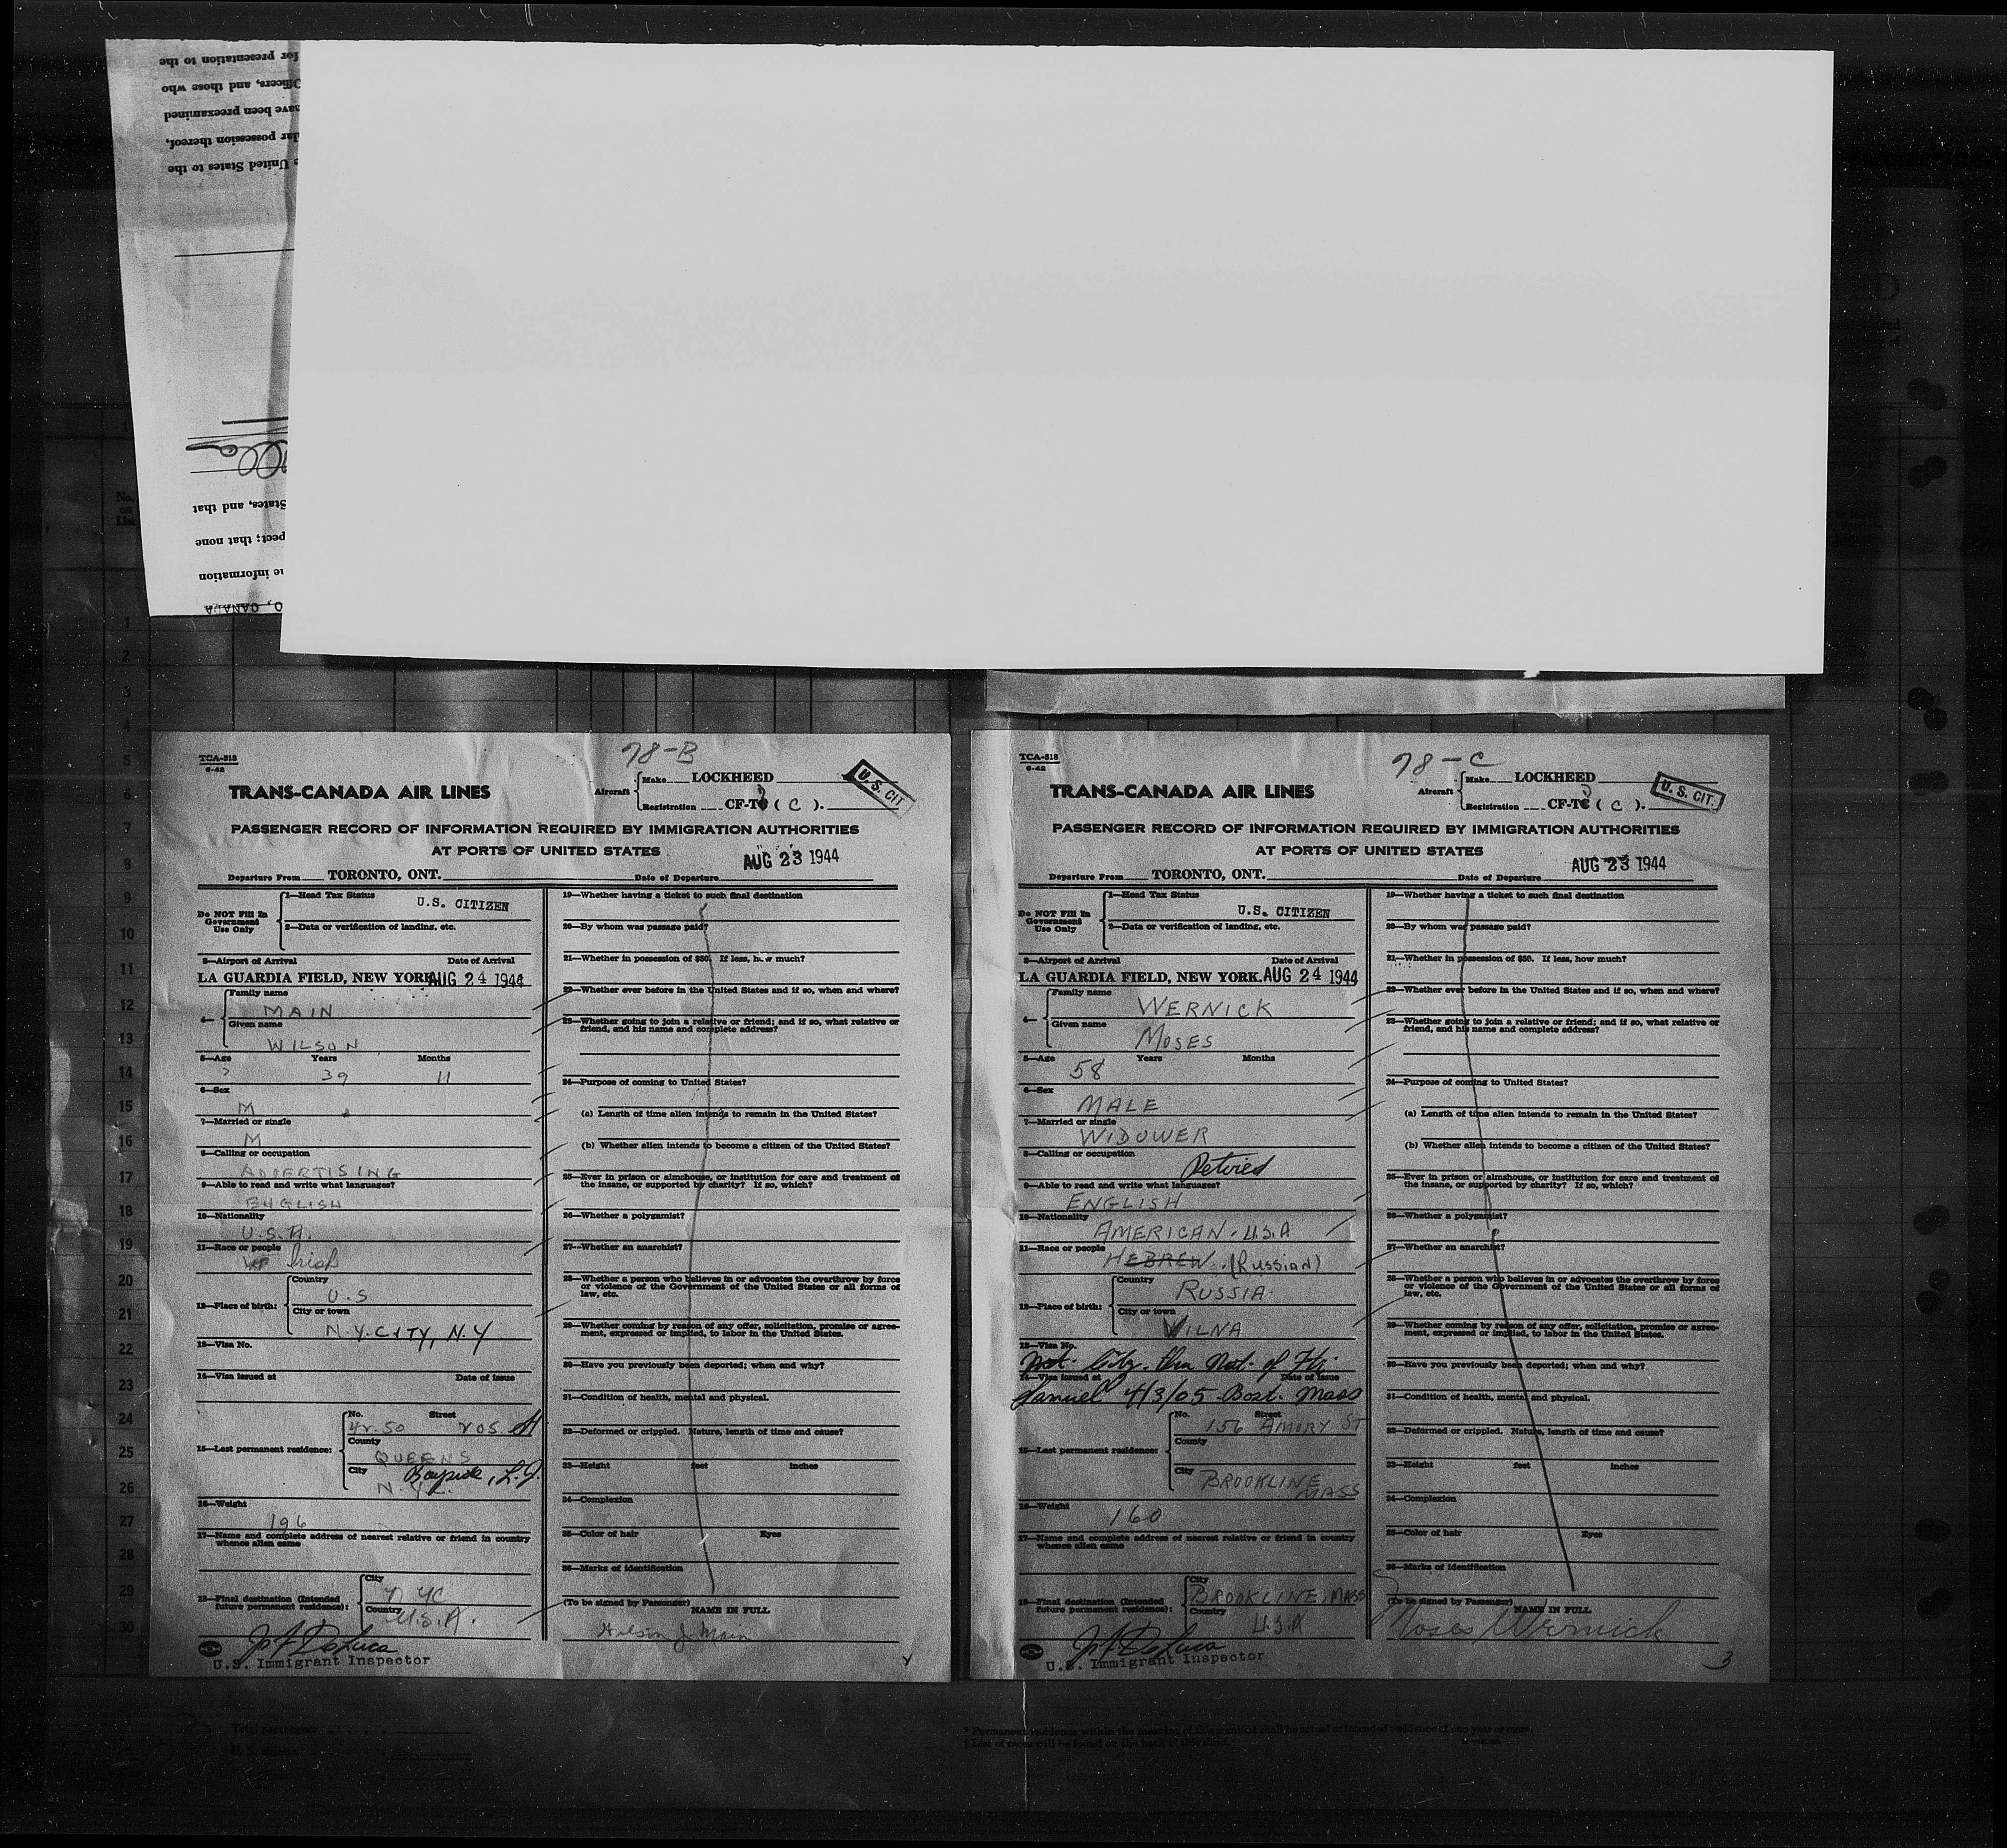 for presentation to the
Officers, and those who
have been preexamined
possession thereof,
United States to the
States, and that
none
information
CANADA
No.
on
List
1
2
3
4
5
6
7
8
9
10
11
12
13
14
15
16
17
18
19
20
21
22
23
24
25
26
27
28
29
30
78-B
TCA-518
6-42
TRANS-CANADA AIR LINES
Aircraft
Make LOCKHEED
Registration CF-TC ( C ).
U. S. CIT
PASSENGER RECORD OF INFORMATION REQUIRED BY IMMIGRATION AUTHORITIES
AT PORTS OF UNITED STATES
AUG 23 1944
Departure From TORONTO, ONT. Date of Departure
Do NOT Fill In
Government
Use Only
1—Head Tax Status
U.S. CITIZEN
2—Data or verification of landing, etc.
3—Airport of Arrival Date of Arrival
LA GUARDIA FIELD, NEW YORK. AUG 24 1944
4— Family name
MAIN
Given name
WILSON
5—Age Years Months
39 11
6—Sex
M
7—Married or single
M
8—Calling or occupation
ADVERTISING
9—Able to read and write what languages?
ENGLISH
10—Nationality
U.S.A.
11—Race or people
Irish
12—Place of birth:
Country
U.S
City or town
N.Y. CITY, N.Y
13—Visa No.
14—Visa issued at Date of issue
15—Last permanent residence:
No. Street
42.50 205 St
County
QUEENS
City Bayside, L.I.
N.Y.C.
16—Weight
196
17—Name and complete address of nearest relative or friend in country
whence alien came
18—Final destination (Intended
future permanent residence):
City
N YC
Country
U.S.A.
U.S. Immigrant Inspector
19—Whether having a ticket to such final destination
20—By whom was passage paid?
21—Whether in possession of $50. If less, how much?
22—Whether ever before in the United States and if so, when and where?
23—Whether going to join a relative or friend; and if so, what relative or
friend, and his name and complete address?
24—Purpose of coming to United States?
(a) Length of time alien intends to remain in the United States?
(b) Whether alien intends to become a citizen of the United States?
25—Ever in prison or almshouse, or institution for care and treatment of
the insane, or supported by charity? If so, which?
26—Whether a polygamist?
27—Whether an anarchist?
28—Whether a person who believes in or advocates the overthrow by force
or violence of the Government of the United States or all forms of
law, etc.
29—Whether coming by reason of any offer, solicitation, promise or agree-
ment, expressed or implied, to labor in the United States.
30—Have you previously been deported; when and why?
31—Condition of health, mental and physical.
32—Deformed or crippled. Nature, length of time and cause?
33—Height feet inches
34—Complexion
35—Color of hair Eyes
36—Marks of identification
(To be signed by Passenger) NAME IN FULL
Wilson J Main
78-C
TCA-518
6-42
TRANS-CANADA AIR LINES
Aircraft
Make LOCKHEED
Registration CF-TC ( C ).
U. S. CIT.
PASSENGER RECORD OF INFORMATION REQUIRED BY IMMIGRATION AUTHORITIES
AT PORTS OF UNITED STATES
AUG 23 1944
Departure From TORONTO, ONT. Date of Departure
Do NOT Fill In
Government
Use Only
1—Head Tax Status
U.S. CITIZEN
2—Data or verification of landing, etc.
3—Airport of Arrival Date of Arrival
LA GUARDIA FIELD, NEW YORK. AUG 24 1944
4— Family name
WERNICK
Given name
MOSES
5—Age Years Months
58
6—Sex
MALE
7—Married or single
WIDOWER
8—Calling or occupation
Retired
9—Able to read and write what languages?
ENGLISH
10—Nationality
AMERICAN. U.S.A
11—Race or people
HEBREW. (Russian)
12—Place of birth:
Country
RUSSIA
City or town
VILNA
13—Visa No.
Nat. Citz. thru Nat. of Fthr.
14—Visa issued at Date of issue
Samuel 4/3/05 Bost. Mass
15—Last permanent residence:
No. Street
156 AMORY ST
County
City
BROOKLINE
MASS
16—Weight
160
17—Name and complete address of nearest relative or friend in country
whence alien came
18—Final destination (Intended
future permanent residence):
City
BROOKLINE, MASS
Country
U.S.A
U.S. Immigrant Inspector
19—Whether having a ticket to such final destination
20—By whom was passage paid?
21—Whether in possession of $50. If less, how much?
22—Whether ever before in the United States and if so, when and where?
23—Whether going to join a relative or friend; and if so, what relative or
friend, and his name and complete address?
24—Purpose of coming to United States?
(a) Length of time alien intends to remain in the United States?
(b) Whether alien intends to become a citizen of the United States?
25—Ever in prison or almshouse, or institution for care and treatment of
the insane, or supported by charity? If so, which?
26—Whether a polygamist?
27—Whether an anarchist?
28—Whether a person who believes in or advocates the overthrow by force
or violence of the Government of the United States or all forms of
law, etc.
29—Whether coming by reason of any offer, solicitation, promise or agree-
ment, expressed or implied, to labor in the United States.
30—Have you previously been deported; when and why?
31—Condition of health, mental and physical.
32—Deformed or crippled. Nature, length of time and cause?
33—Height feet inches
34—Complexion
35—Color of hair Eyes
36—Marks of identification
(To be signed by Passenger) NAME IN FULL
Moses Wernick
3
Total passengers
* Permanent residence within the meaning of this manifest shall be actual or intended residence of one year or more.
† List of races will be found on the back of this sheet.